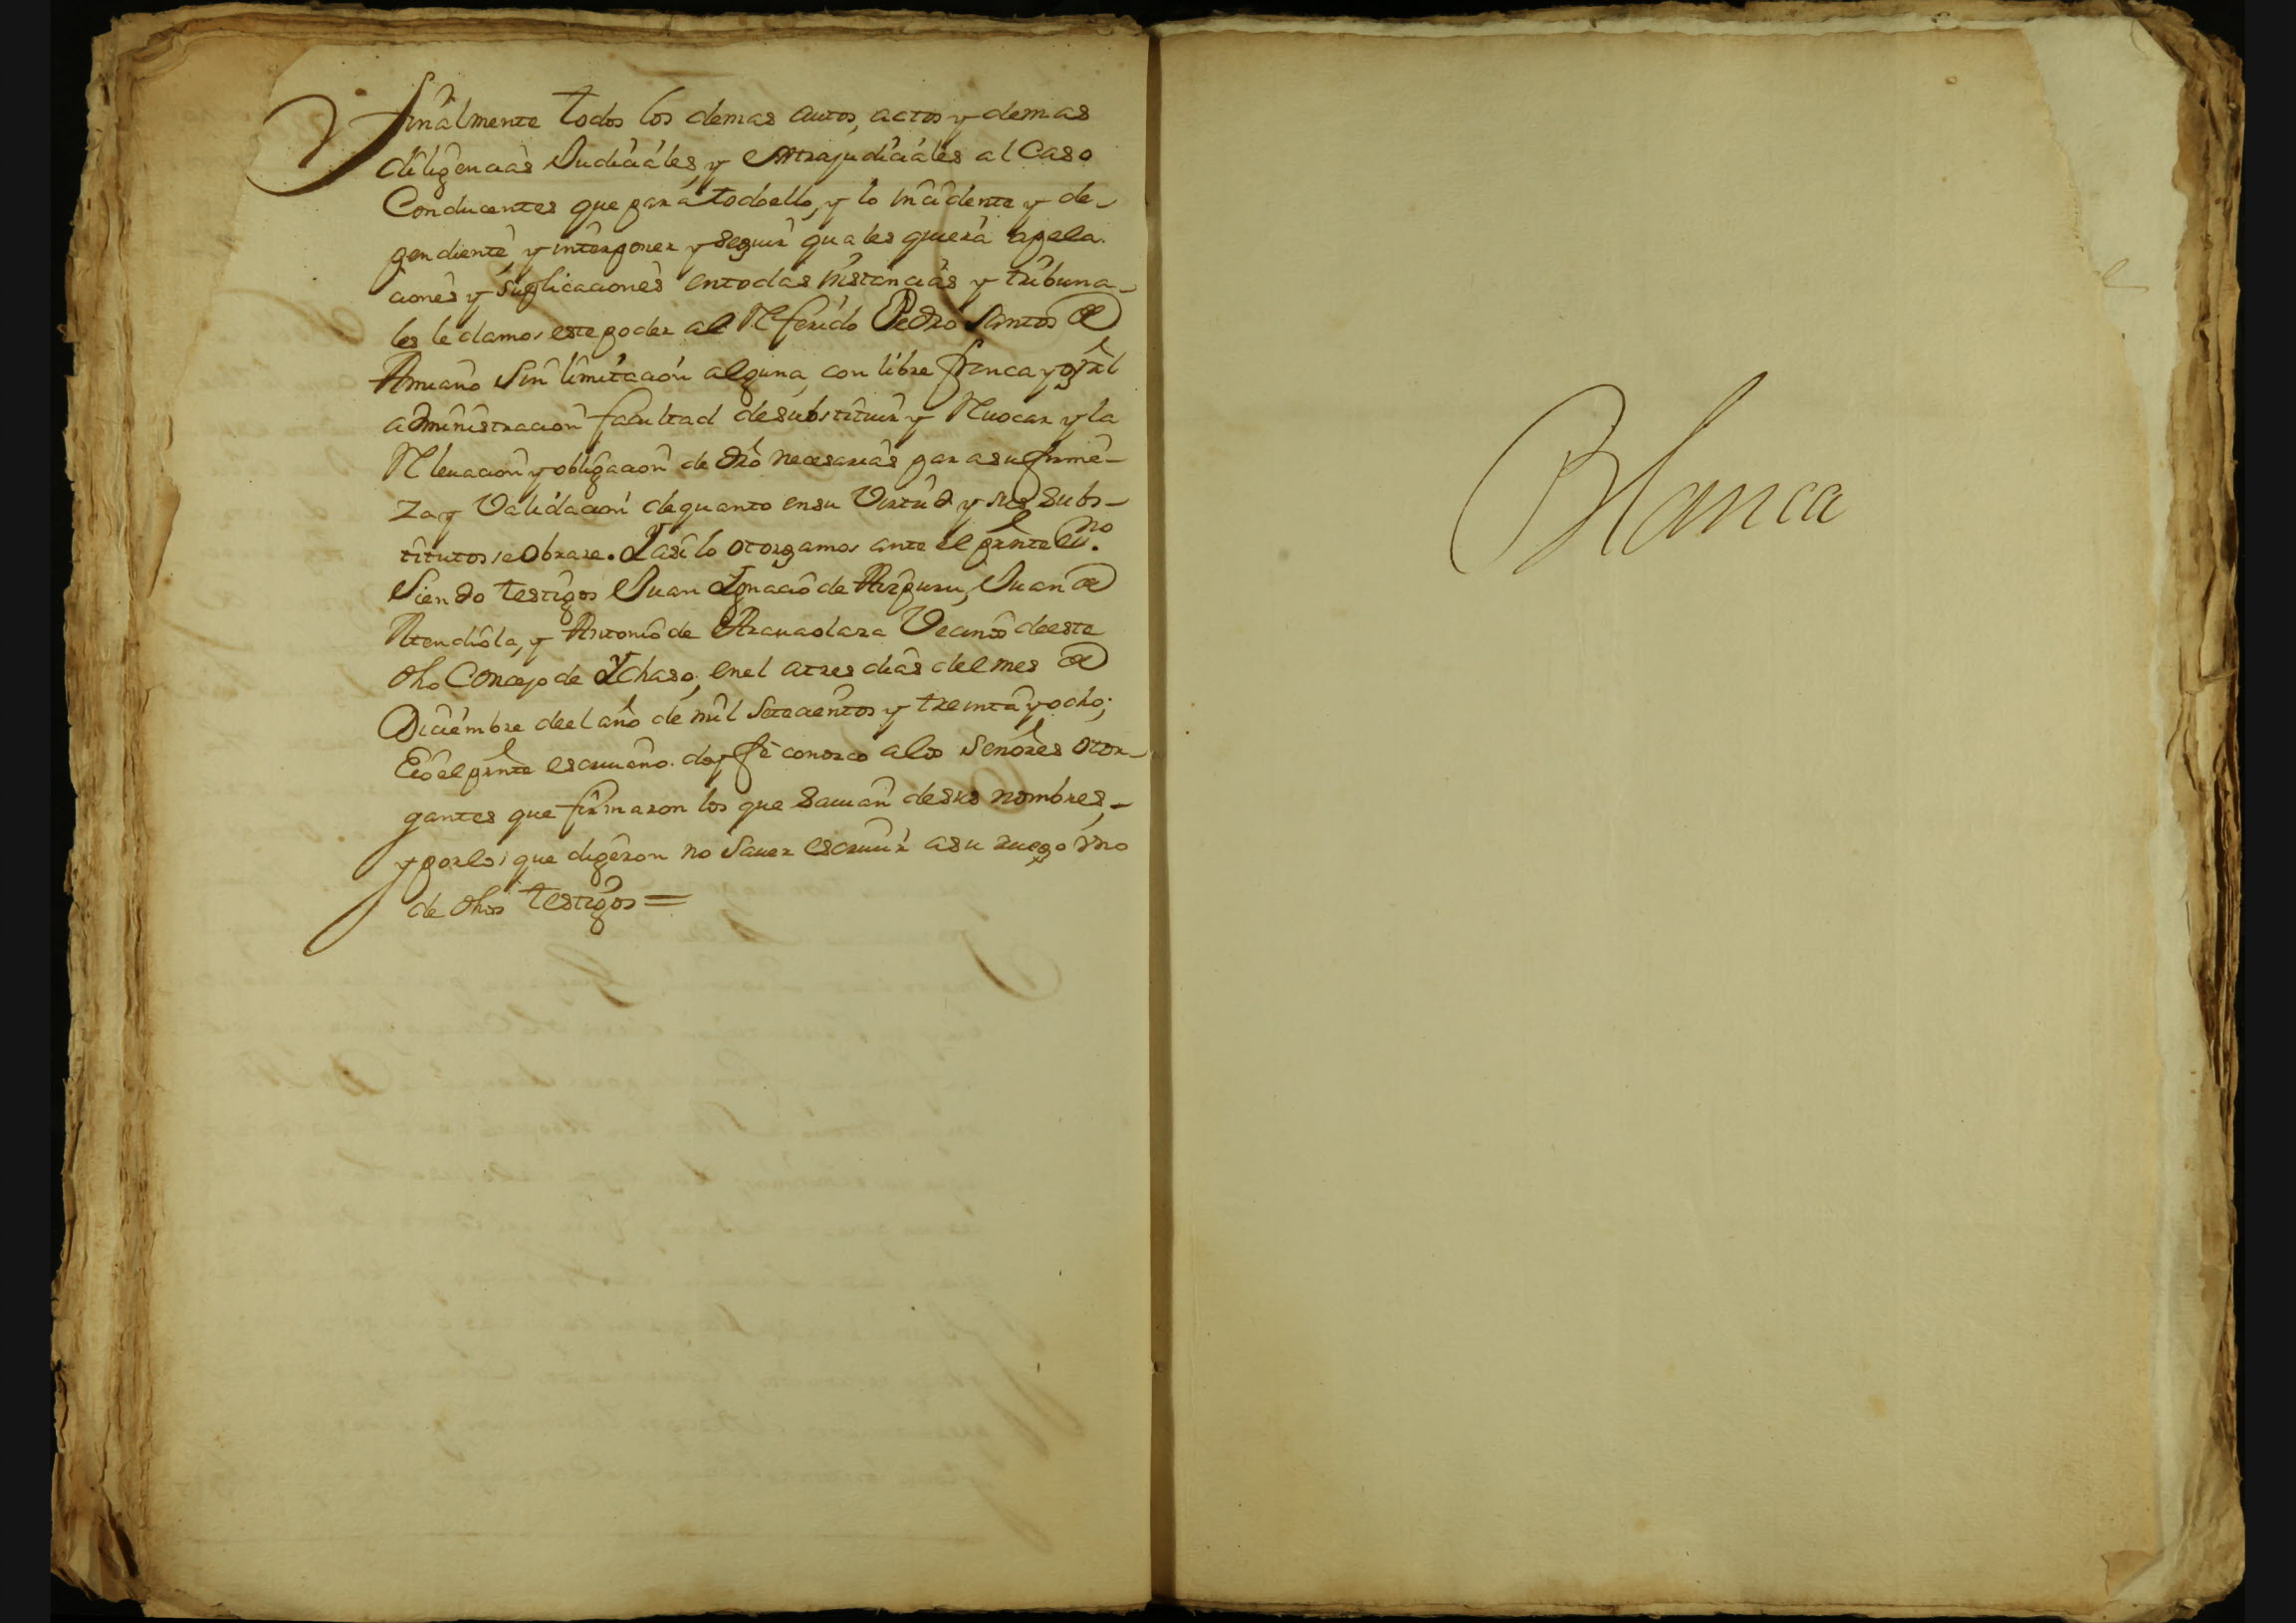 Y finalmente todos los demas autos, actos y demas
diligencias Judiciales, y extrajudiciales al Caso
Conducentes que para todo ello, y lo incidente y de-
pendiente, y interponer y seguir quales quiera apela-
ciones y suplicaciones en todas instancias y tribuna-
les le damos este poder al Referido Pedro Santos de
Amiano Sin limitacion alguna, con libre franca y gral
administracion facultad de substituir y Reuocar y la
Releuacion y obligacion de dro necesarias para su firme-
za y Validacion de quanto en su Virtud y sus subs-
titutos se obrare. Y asi lo otorgamos ante el prnte essno.
Siendo testigos Juan Ygnacio de Juan de
y Antonio de Vecinos de este
dho Concejo de Ychaso, en el a tres dias del mes de
Diciembre de el año de mil setecientos y treinta y ocho;
E io el prnte escriuano. doy fe conozco a los señores otor-
gantes que firmaron los que sauian de sus nombres,
y por los que digeron no sauer escriuir a su ruego vno
de dhos testigos =
Blanca